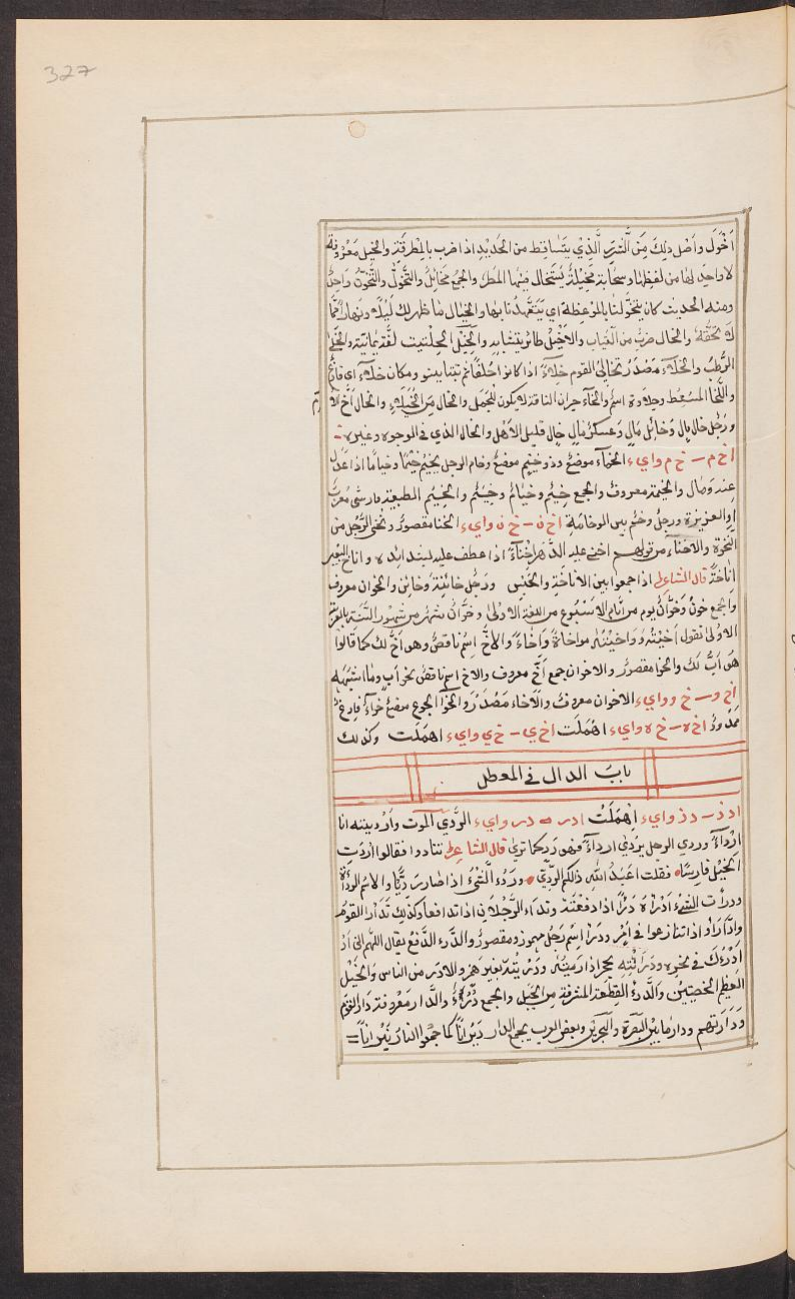 327
اَخْوَل وأَصْل ذلِكَ مِنَ الشَرَرِ الَّذِي يتَسَاقط من الحَديْدِ اذا ضرب بالمِطْرقَةِ والخيل مَعْرُوفَة
لا واحِد لها من لفظِها وسحابة مُخِيْلةٌ يُسْتَحال فيْها المَطَر والجمْع مَخَائِلُ والتَّخوّل والتَّخوّن واحِدٌ
ومنه الحديث كان يتخوَّلنا بالموْعِظة اي يَتَعَهَّدُنا بها والخيَال ما ظهر لك ليْلًا ونهارًا مِمّا
لا تحَقُّقه والخال ضربٌ من الثياب والأخْيَلُ طائر يتشاءم به والخِيْل الحِلْتيت لغة يمانية والخَلَى
الرُّطب والخلاء مَصْدَرُ تخالى القوم خِلاءً اذا كانوا حُلفاءً ثم تباينوا ومكان خلاء اى فارغ
واللّخا المسْعُط وحلاوة اسمٌ والخلاء حِران الناقة لا يكون للجَمَل والخال مِن الخُيَلاءِ والخال أخ الأم
ورَجُل خال بال وخائِل مَالٍ وعَسكرُ خالٍ قليل الأهْل والخال الذى في الوجوه وغيره
اخ م – خ م واي ء الخماء موضعٌ وذو خِيَمٍ موضعٌ وخام الرجل يخيْم خَيْمًا وخيامًا اذا عَدَل
عنه ومال والخيْمة معروفٌ والجمع خِيَمٌ وخيامٌ وخِيَمٌ والخِيْم الطبيعة فارسى مُعرّب
او العزيزة ورجلٌ وخمٌ بيّن الوخامَة اخ ن – خ ن واي ء الخنا مقصورٌ ونخى الرَّجل من
النخْوة والاخناء من قولهم اخنى عليه الدَّهر اِخْناءً اذا عطف عليه واناخ البَعير
اِناخَةً قال الشاعر اذا جمعوا بين الاناخَةِ والحَبْس ورَجُل خائنَة وخائِن والخوان معروف
والجمْع خونٌ وخَوَّان يوم من أيّام الأسْبُوع من اللغة الاولى وخَوَّان شهرٌ من شهور السَّنَة بالعربيّة
الاولى تقول آخَيْتُه وواخيْتُه مواخاةً وإخاءً والأخّ اِسْم ناقصٌ وهو أخٌ لك كما قالوا
هو أبٌ لك والخوا مقصورٌ والاخوان جمع أخٍ معروف والاخ اسم ناقصٌ نحو أبٍ وما اشبهه
اخ و – خ و واي ء الاخوان معروفٌ والاخاء مَصْدَرٌ والخَوا الجوع موضع خَواءٌ فارغ
ممدُودٌ اخ ه – خ ه واي ء اهْمَلت اخ ي – خ ي واي ء اهمَلت وكذلك
بابُ الدال في المعطل
اد ذ – د ذ واي ء اِهمَلتْ اد ر ه د ر واي ء الرَّدي الموت وأرْديته انا
اِرْدآءً وردي الرجل يردَي ارداءً فهو رَدٍ كما ترى قال الشاعر تنادوا فقالوا اردَتِ
الخيْل فارسًا فقلت أعَبْدُ اللهِ ذالكم الرَّدِيّ وردُء الشَّيُ اذا صار رَدِيًّا والاسْم الرداءة
ودرأت الشَّيْءَ ادْرَاهُ دَرْأً اذا دفعْتَه وتدارَء الرَّجلان اذا تدافعا وكذلك تَدارَأ القوم
وادَّارَأوا اذا تنازعوا في أمْرٍ ودَرَأ اِسْم رَجُل مهموز ومقصورٌ والدَّرء الدَّفعُ يقال اللهم انى
ادْرَءُكَ في نحْوره ودَرَأتُه بحجرٍ اذا رَمَيْتُه
العَظِيْم الخصيَتين والدَّرْءُ القِطْعَة المشرفة مِن الجَبَل والجمع دُرُؤٌ والدَّار مَعْرُوفة دَارُ القوْم
ودَارَتهم ودارٌ ما بيْن البَصْرة والبحرَيْن وبعض العرب يجمع الدار دِيْرانًا كما جمعوا النارَ نِيْرانًا